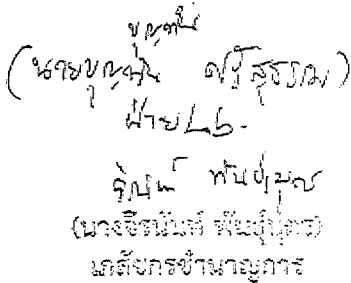 บุญทัน
(นายบุญทัน ศรีสุธรรม)
ฝ่าย
พันธุ์บุตร
(นางจีรนันท์ พันธุ์บุตร)
เภสัชกรชำนาญการ